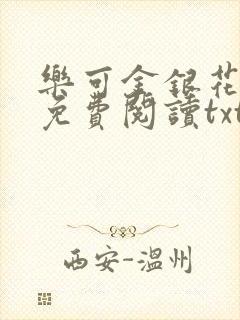 樂可金銀花
免費閱讀txt
西安-温州